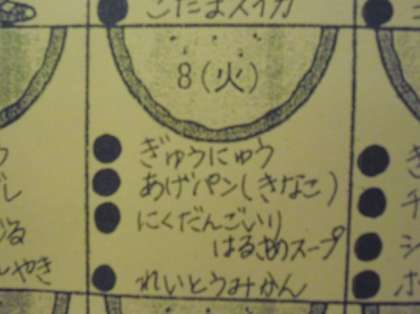 こだまスイカ
8(火)
ぎゅうにゅう
あげパン(きなこ)
にくだんごいり
はるさめスープ
れいとうみかん